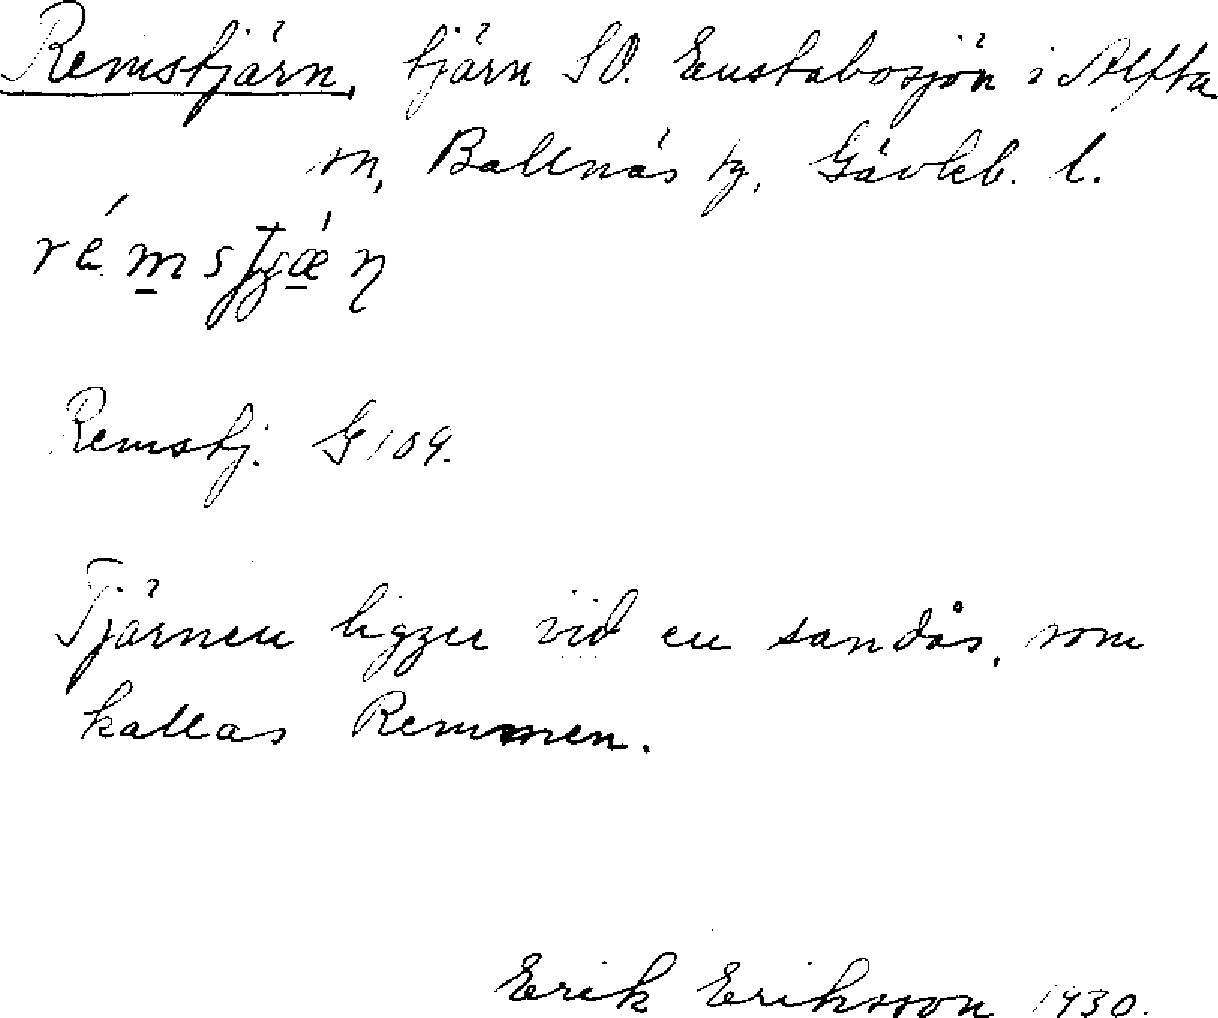 Remstjärn, tjärn SO. Enstabosjön i Alfta
sn, Bollnäs tg, Gävleb. l.
Remstj. G 109.
Tjärnen ligger vid en sandås, som
kallas Remmen.
Erik Eriksson 1930.